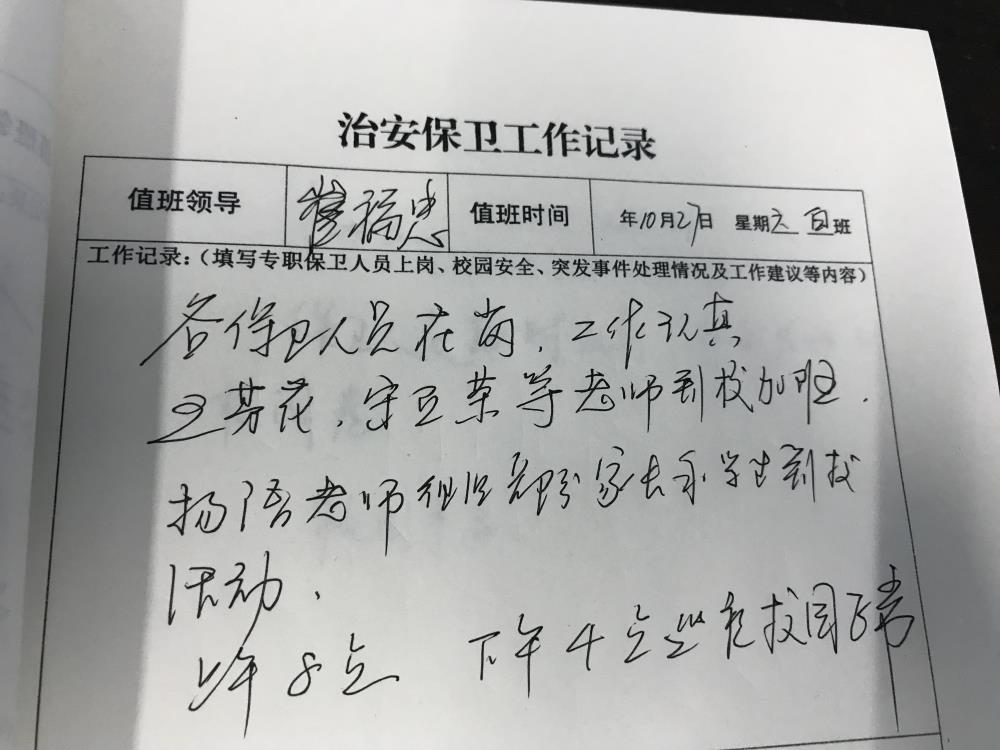 治安保卫工作记录
值班领导 崔福忠 值班时间 年10月27日 星期六 白班
工作记录：（填写专职保卫人员上岗、校园安全、突发事件处理情况及工作建议等内容）
各保卫人员在岗，工作认真
王芬花，宋亚荣等老师到校加班．
杨语老师组织部分家长和学生到校
活动．
上午8点 下午4点巡查校园正常